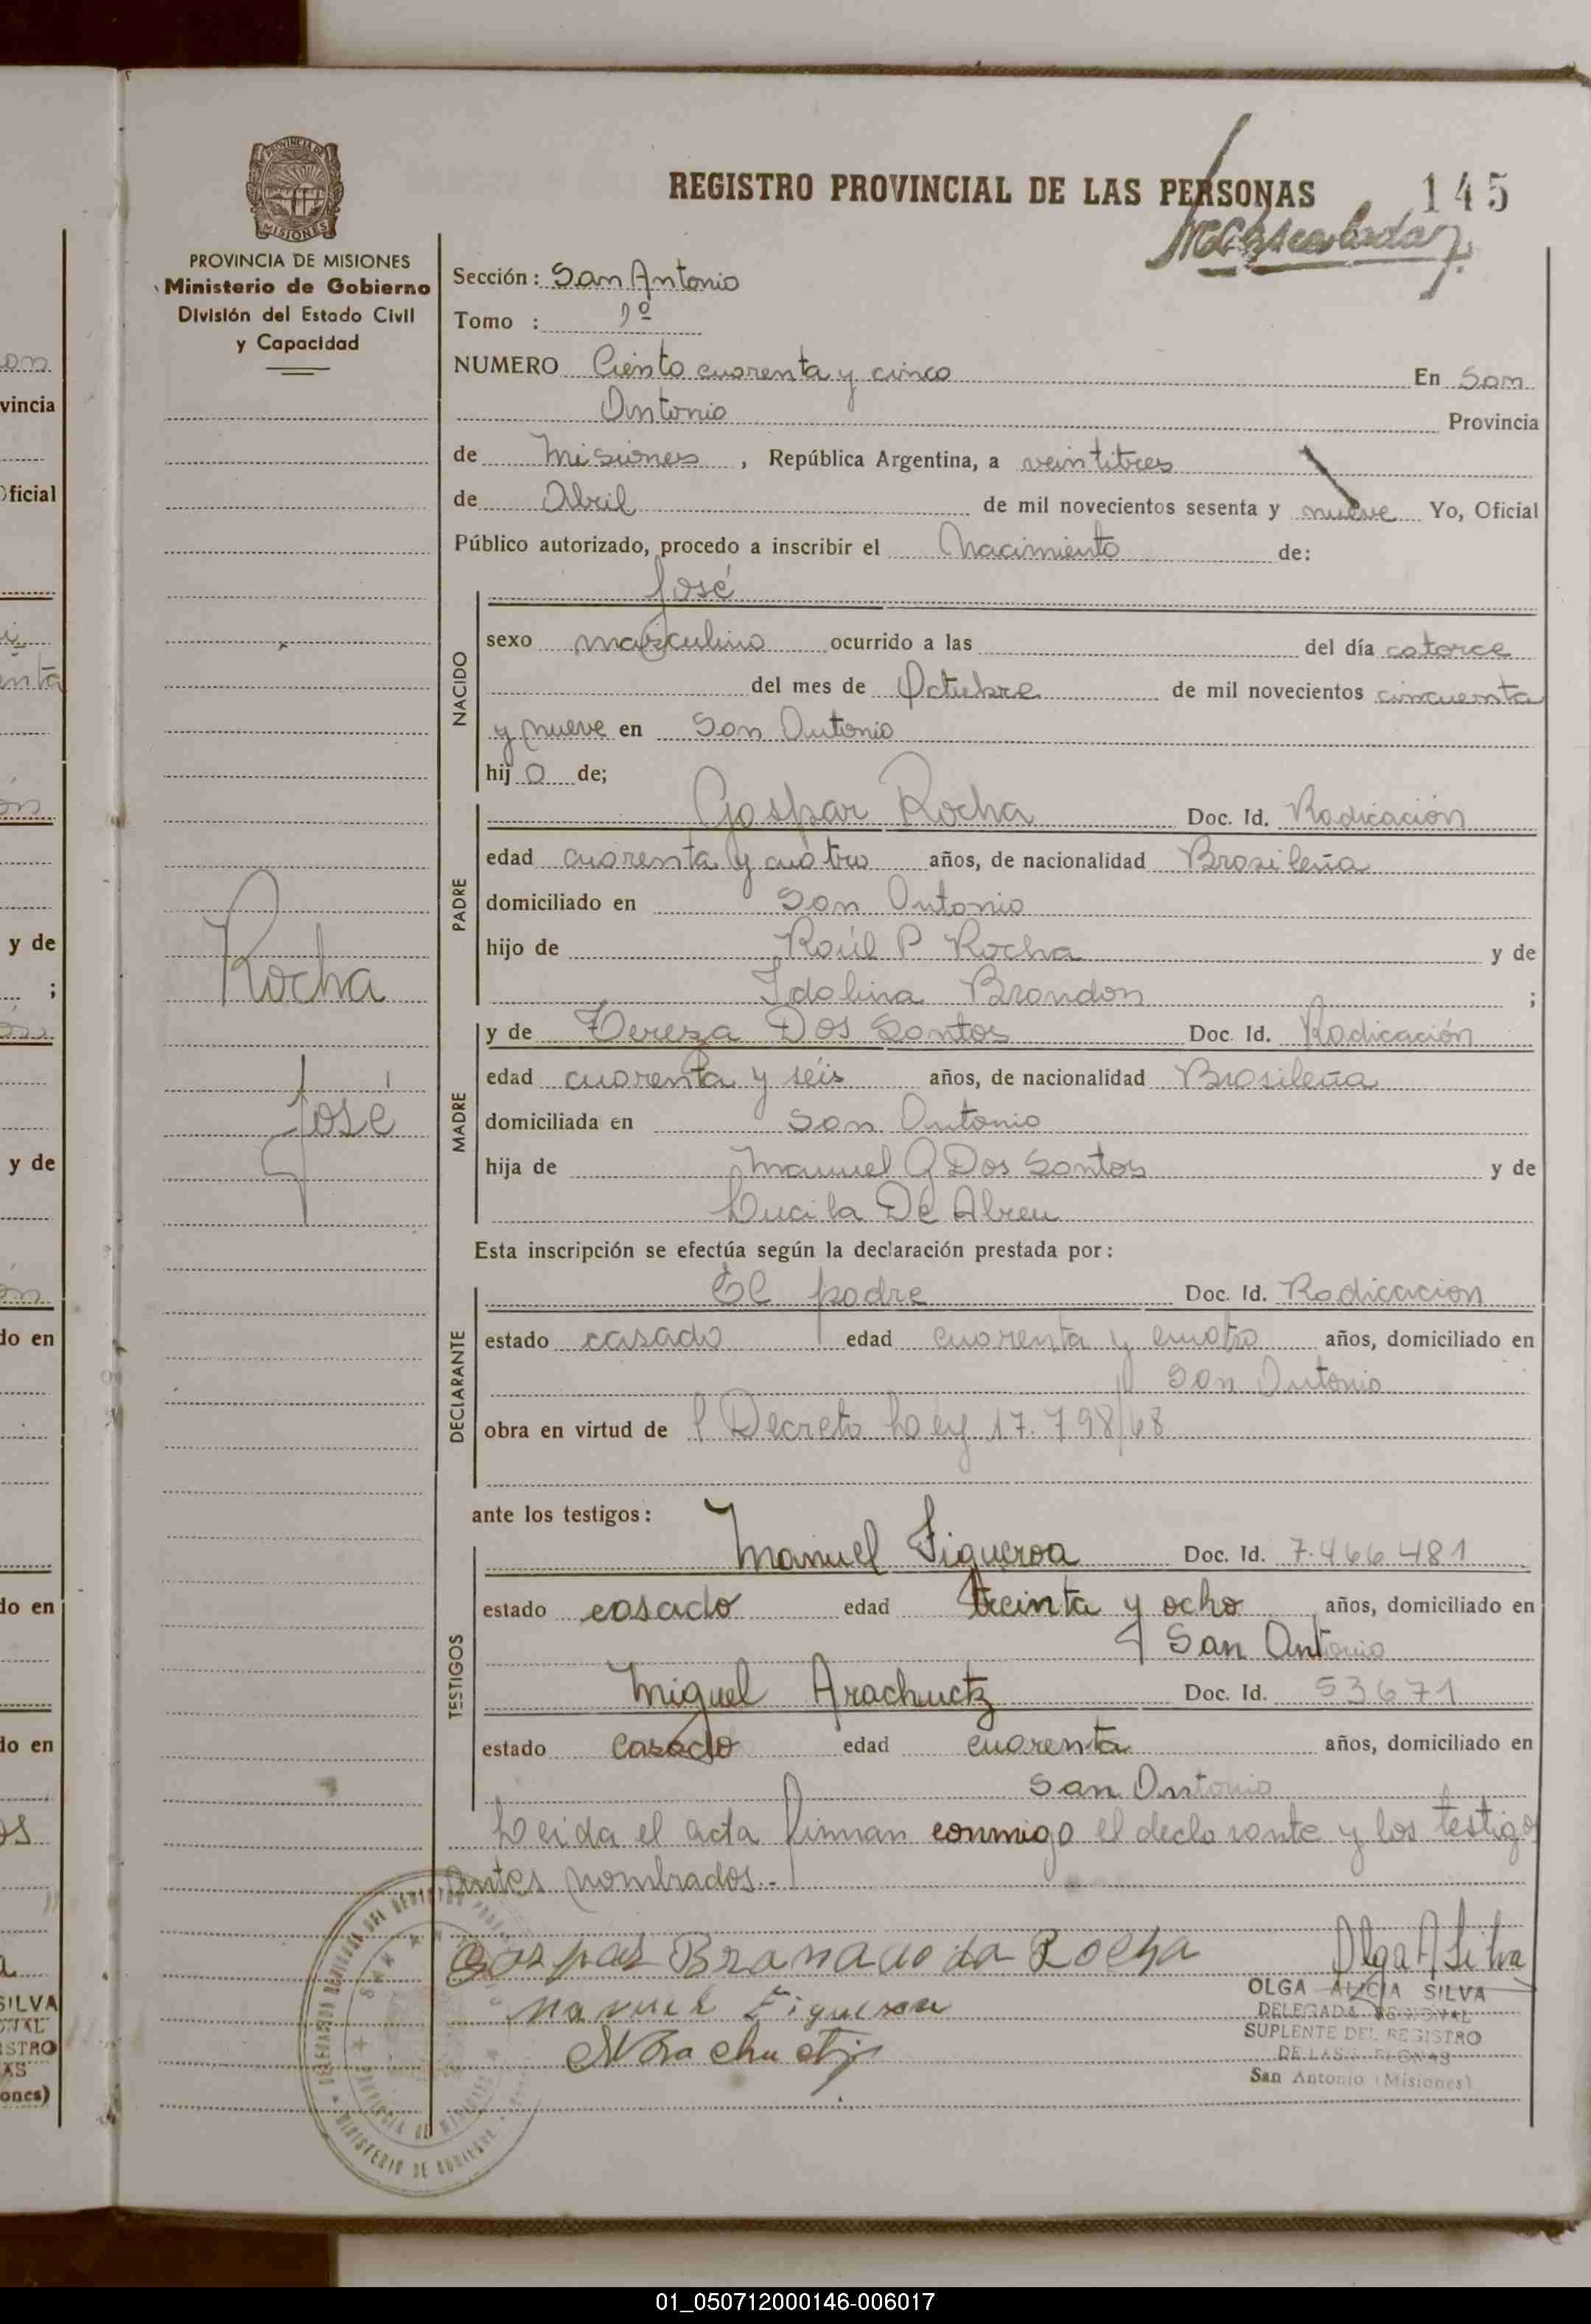 REGISTRO PROVINCIAL DE LAS PERSONAS
145
PROVINCIA DE MISIONES
PROVINCIA DE MISIONES
Ministerio de Gobierno
División del Estado Civil
y Capacidad
Sección: San Antonio
Tomo : 1º
NUMERO Ciento cuarenta y cinco En San
Antonio Provincia
de Misiones, República Argentina, a veintitres
de Abril de mil novecientos sesenta y nueve Yo, Oficial
Público autorizado, procedo a inscribir el Nacimiento de:
NACIDO
José
sexo masculino ocurrido a las del día catorce
del mes de Octubre de mil novecientos cincuenta
y nueve en San Antonio
hijo de;
PADRE
Gaspar Rocha Doc. Id. Radicación
edad cuarenta y cuatro años, de nacionalidad Brasileña
domiciliado en San Antonio
hijo de Raúl P. Rocha y de
Idolina Brandon ;
MADRE
y de Tereza Dos Santos Doc. Id. Radicación
edad cuarenta y séis años, de nacionalidad Brasileña
domiciliada en San Antonio
hija de Manuel G Dos Santos y de
Lucila De Abreu
Rocha
José
Esta inscripción se efectúa según la declaración prestada por:
DECLARANTE
El padre Doc. Id. Radicacion
estado casado edad cuarenta y cuatro años, domiciliado en
San Antonio
obra en virtud de l Decreto Ley 17.798/68
ante los testigos:
TESTIGOS
Manuel Figueroa Doc. Id. 7.466.481
estado casado edad treinta y ocho años, domiciliado en
San Antonio
Miguel Arachuctz Doc. Id. 53671
estado casado edad cuarenta años, domiciliado en
San Antonio
Leida el acta firman conmigo el declarante y los testigo
antes nombrados.-
Rocha
Olga A Silva
Manuel Figueroa
OLGA ALICIA SILVA
DELEGADA REGIONAL
SUPLENTE DEL REGISTRO
DE LAS PERSONAS
San Antonio (Misiones)
MINISTERIO DE GOBIERNO
on
vincia
Oficial
y de
;
y de
do en
do en
do en
SILVA
STRO
AS
ones)
01_050712000146-006017